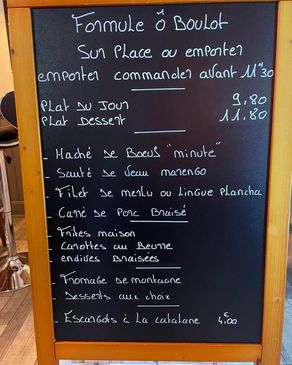 Formule Ô Boulot
Sur Place ou emporter
emporter commander avant 11H30
Plat Du Jour 9,80
Plat Dessert 11.80
- Haché de Boeuf "minute"
- Sauté de veau marengo
- Filet de merlu ou Lingue Plancha
- Carré de Porc Braisé
- Frites maison
Carottes au Beurre
endives Braisées
- Fromage de montagne
- Desserts aux choix
- Escargots à La catalane 4,00€